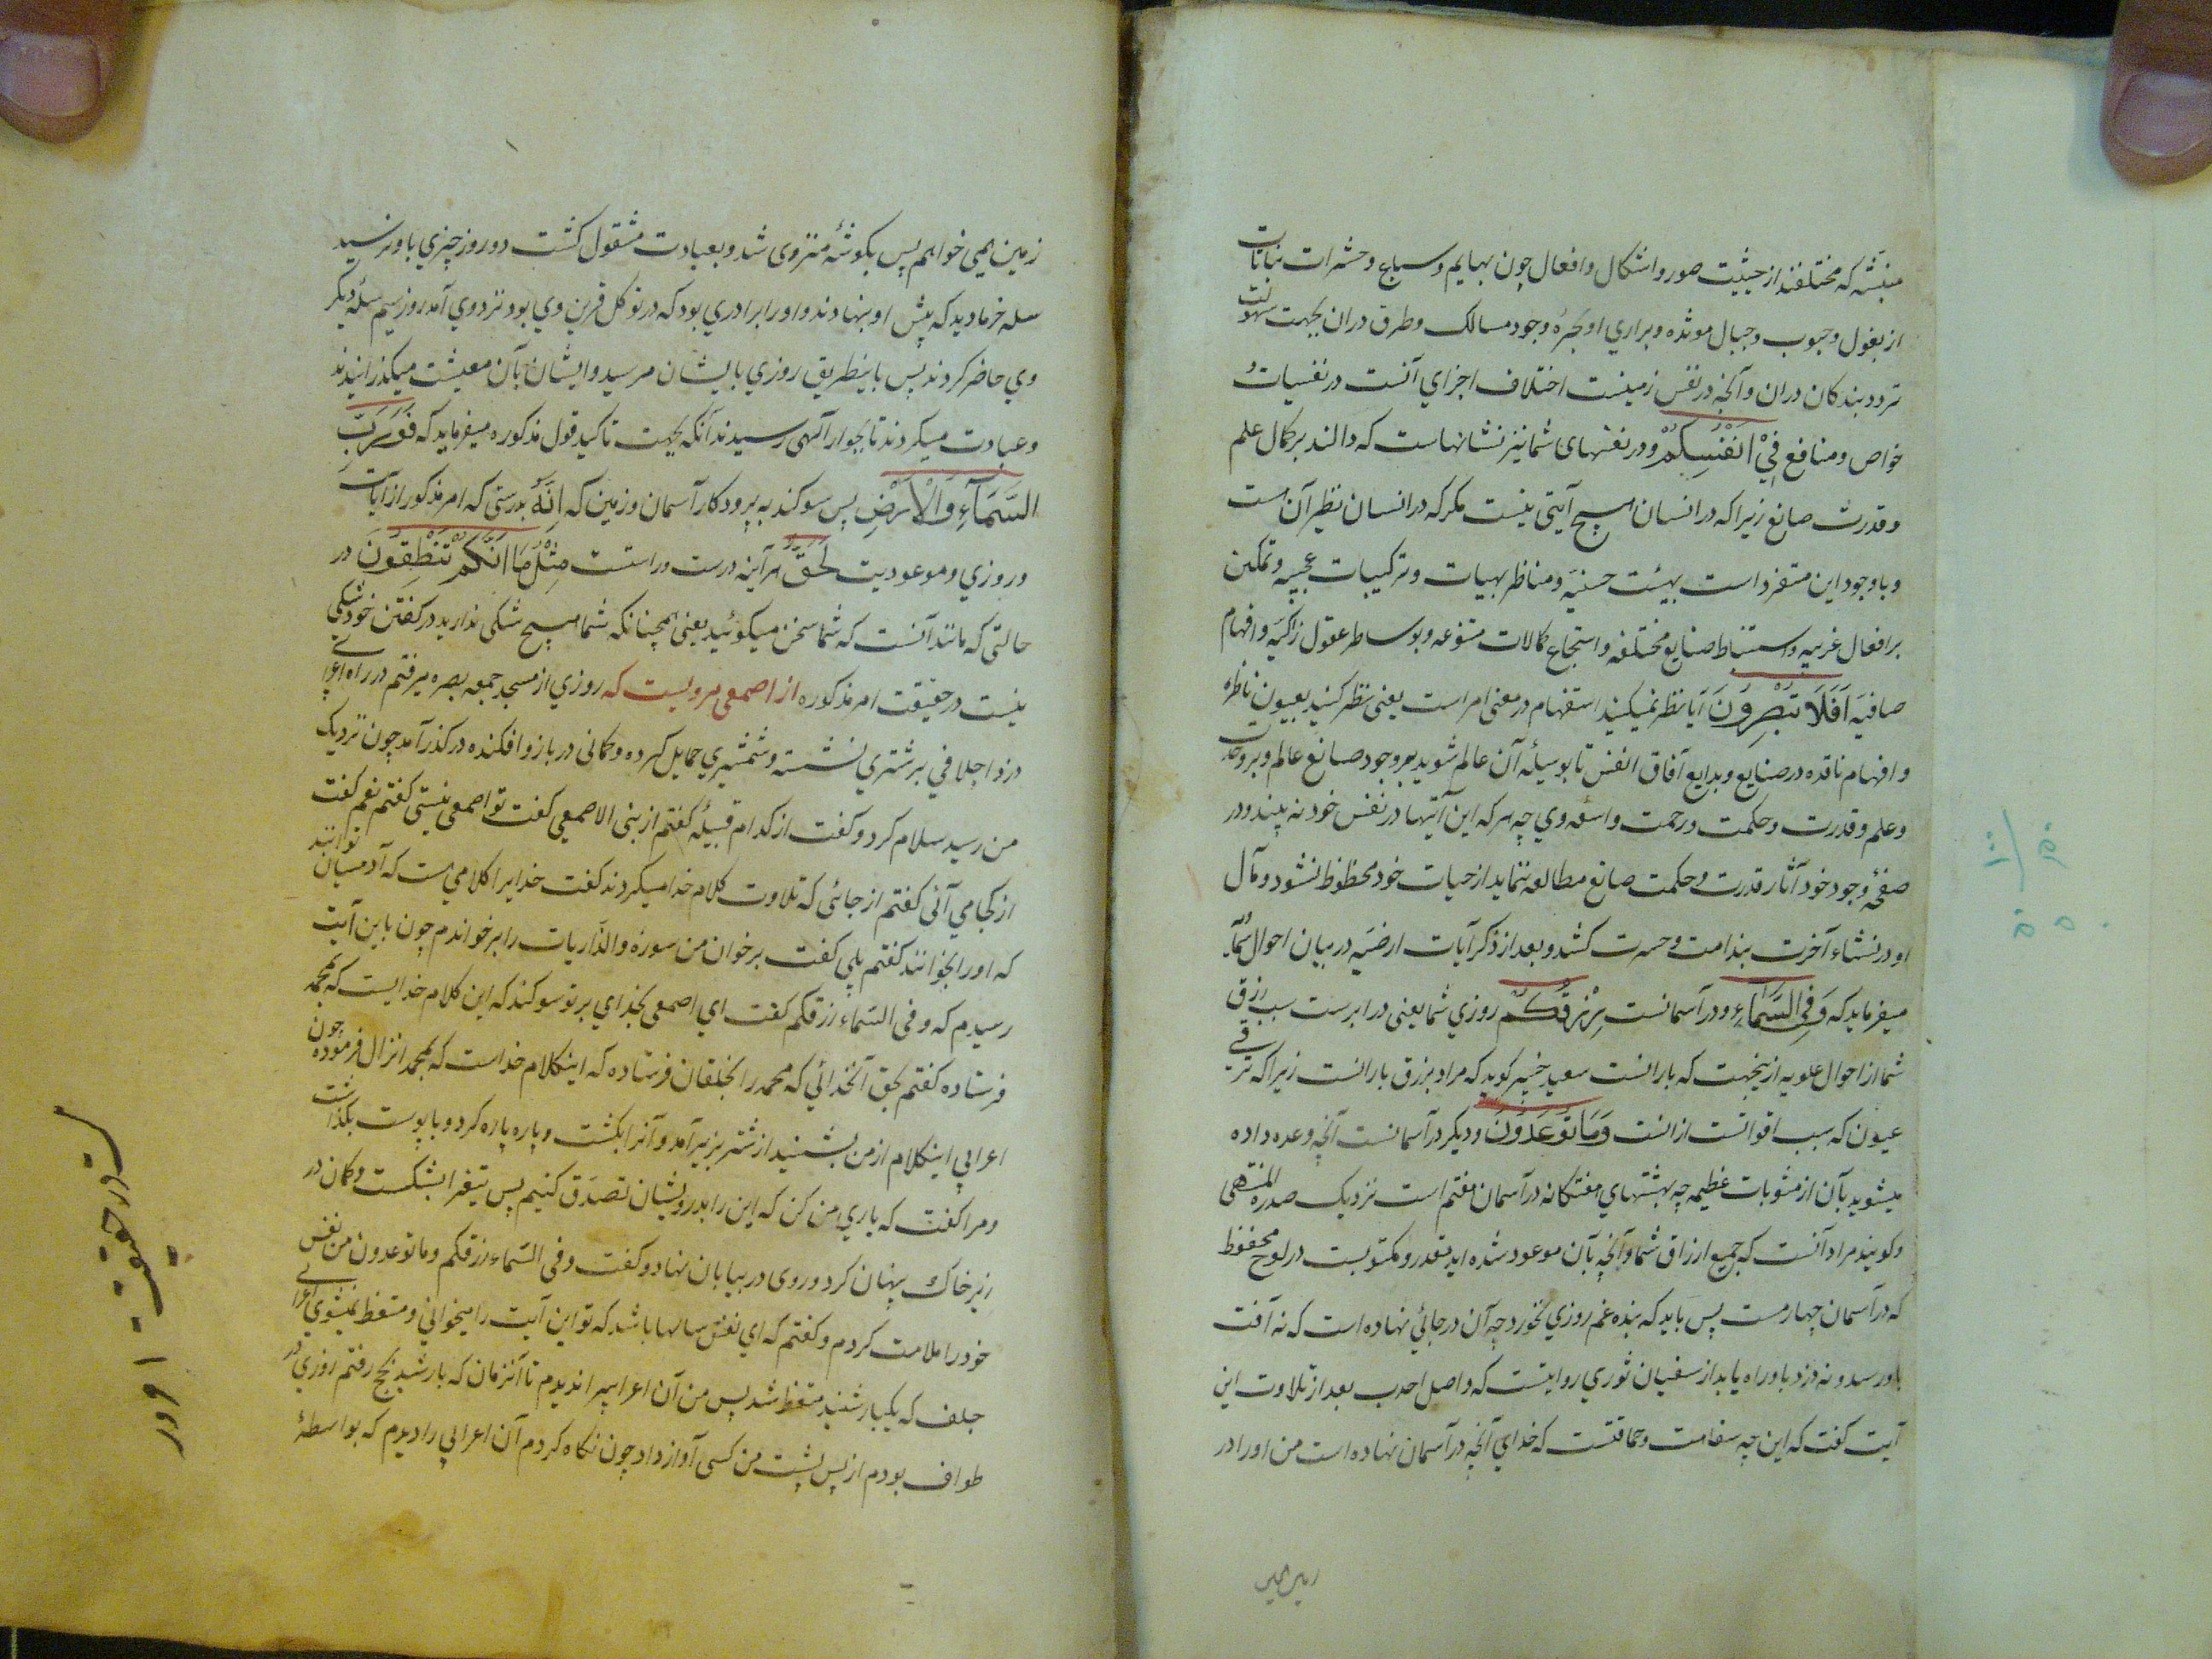 منبثه که مختلفند از حیثیت صور و اشکال و افعال چون بهایم و سباع و حشرات نباتات
از بقول و حبوب و جبال موتده و براری او بحره وجود مسالک و طرق دران بجهت سهولت
تردد بندکان دران و آنچه در نفس زمینست اختلاف اجزای آنست در نفسیات و
خواص و منافع فِيْ اَنْفُسِكُمْ و در نفسهای شما نیز نشانهاست که دالند بر کمال علم
و قدرت صانع زیرا که در انسان هیچ آیتی نیست مکر که در انسان نظیر آن است
و با وجود این متفرد است بهیئت حسنیه و مناظر بهیات و ترکیبات عجیبه و تمکین
بر افعال غریبه و استنباط صنایع مختلفه و استجماع کمالات متنوعه و بوساطر عقول زاکیه و افهام
صافیه اَفَلَا تُبْصِرُوْنَ آیا نظر نمیکنید استفهام در معنی امر است یعنی نظر کنید بعیون ناظره
و افهام ناقده در صنایع و بدایع آفاق انفس تا بوسیلهٔ آن عالم شوید بوجود صانع عالم و بر وحدت
و علم و قدرت و حکمت و رحمت واسعه وی چه هر که این آیتها در نفس خود نه بیند و در
صفحهٔ وجود خود آثار قدرت و حکمت صانع مطالعه ننماید از حیات خود محظوظ نشود و مآل
او در نشاء آخرت بندامت و حسرت کشد و بعد از ذکر آیات ارضیه در بیان احوال سما
میفرماید که وَفِي السَّمَآءِ و در آسمانست رِزْقُكُمْ روزی شما یعنی در ابرست سبب رزق
شما از احوال علویه از ینجهت که بارانست سعید خبیر کوید که مراد برزق بارانست زیرا که ترقی
عیون که سبب اقواتست ازانست وَمَا تُوْعَدُوْنَ و دیکر در آسمانست آنچه وعده داده
میشوید بآن از مثوبات عظیمه چه بهشتهای هفتکانه در آسمان هفتم است نزدیک صدرة المنتهی
و کویند مراد آنست که جمیع ارزاق شما و آنچه بآن موعود شده اید مقدر و مکتوبست در لوح محفوظ
که در آسمان چهارمست پس باید که بنده غم روزی نخورد چه آن در جائی نهاده است که نه آفت
باو رسد و نه دزد باو راه یابد از سفیان ثوری روایتست که واصل احدب بعد از تلاوت این
آیت کفت که این چه سفاهت و حماقتست که خدای آنچه در آسمان نهاده است من او را در
زمین همی
زمین همی خواهم پس بکوشهٔ منزوی شد و بعبادت مشغول کشت دو روز چیزی باو نرسید
سله خرما دید که پیش او بنهادند و او را برادری بود که در توکل قرین وی بود نزد وی آمد روز سیم سلهٔ دیکر
وی حاضر کردند پس باینطریق روزی بایشان میرسید و ایشان بآن معیشت میکذرانیدند
و عبادت میکردند تا بجوار آلهی رسیدند آنکه بجهت تاکید قول مذکوره میفرماید که فَوَرَبِّ
السَّمَآءِ وَالْاَرْضِ پس سوکند به پرودکار آسمان و زمین که اِنَّهُ بدرستی که امر مذکور از آیات
و روزی و موعودیت لَحَقٌّ هر آینه درست و راستست مِثْلَ مَا اَنَّكُمْ تَنْطِقُوْنَ در
حالتی که مانند آنست که شما سخن میکوئید یعنی همچنانکه شما هیچ شکی ندارید در کفتن خود شکی
نیست در حقیقت امر مذکوره از اصمعی مرویست که روزی از مسجد جمعه بصره میرفتم در راه اعرابی
دزد اجلافی بر شتری نشسته و شمشیری حمایل کرده و کمانی در بازو افکنده در کذر آمد چون نزدیک
من رسید سلام کرد و کفت از کدام قبیلهٔ کفتم از بنی الاصمعی کفت تو اصمعی نیستی کفتم نعم کفت
از کجا می آئی کفتم از جائی که تلاوت کلام خدا میکردند کفت خدایرا کلامی هست که آدمیان توانند
که او را بخوانند کفتم بلی کفت برخوان من سوره والذاریات را برخواندم چون باین آیت
رسیدم که و فی السماء رزقکم کفت ای اصمعی بخدای بر تو سوکند که این کلام خدایست که بمحمد
فرستاده کفتم بحق آنخدائی که محمد را بخلقان فرستاده که اینکلام خداست که بمحمد انزال فرموده چون
اعرابی اینکلام از من بشنید از شتر بزیر آمد و آنرا بکشت و پاره پاره کرد و با پوست بکذاشت
و مرا کفت که یاری من کن که این را بدرویشان تصدق کنیم پس تیغرا بشکست و کمان در
زیر خاک پنهان کرد و روی در بیابان نهاد و کفت و فی السماء رزقکم و ما توعدون من نفس
خود را ملامت کردم و کفتم که ای نفس سالها باشد که تو این آیت را میخوانی و متعظ نمیشوی اعرابی
جلف که یکبار شنید متعظ شد پس من آن اعرابیرا ندیدم تا آنزمان که با رشید بحج رفتم روزی در
طواف بودم از پس پشت من کسی آواز داد چون نکاه کردم آن اعرابی را دیدم که بواسطهٔ